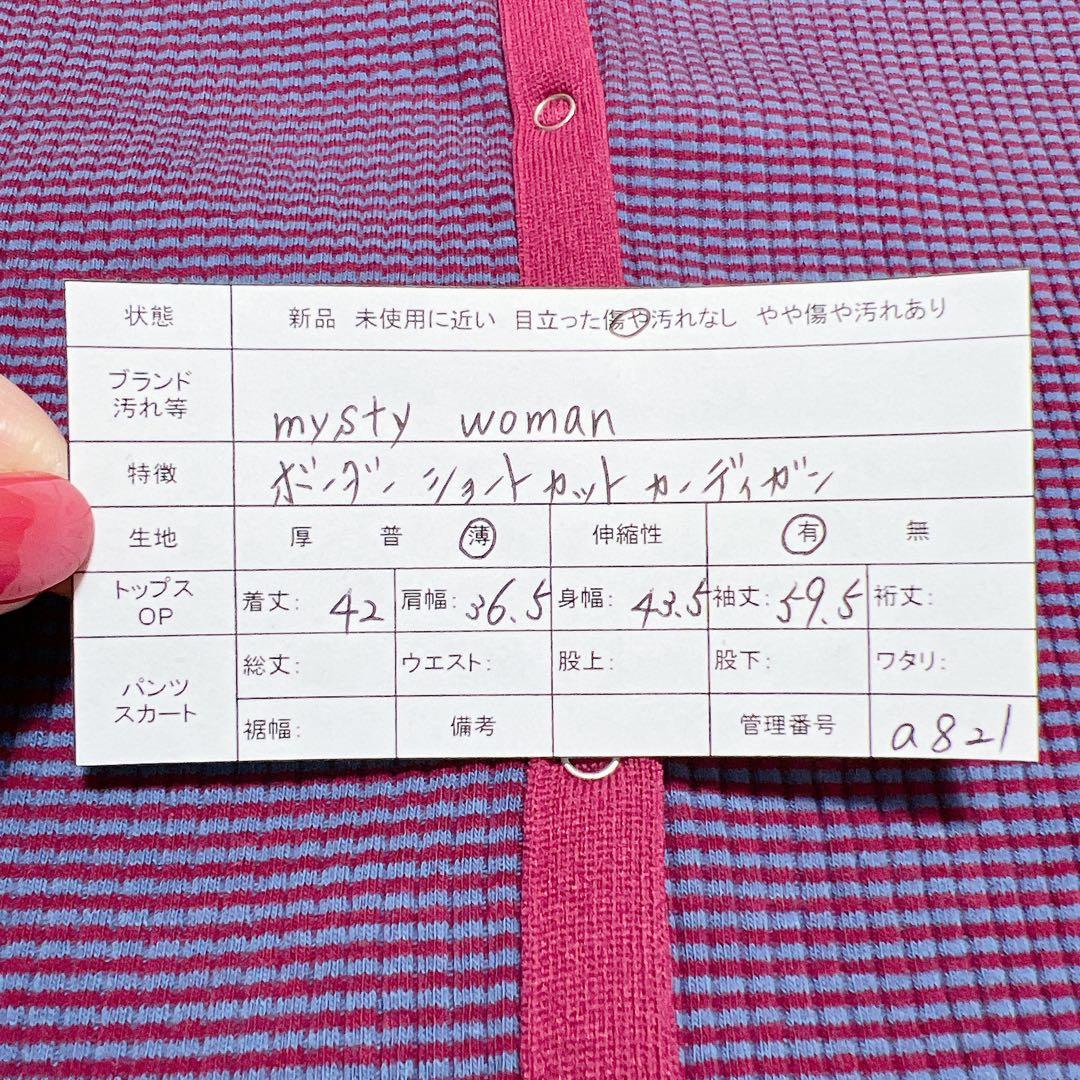 状態 新品 未使用に近い 目立った傷や汚れなし やや傷や汚れあり
ブランド
汚れ等 mysty woman
特徴 ボンダン ショート カット カーディガン
生地 厚 普 薄 伸縮性 有 無
トップス
OP 着丈: 42 肩幅: 36.5 身幅: 43.5 袖丈: 59.5 裄丈:
パンツ
スカート 総丈: ウエスト: 股上: 股下: ワタリ:
裾幅: 備考 管理番号 a821